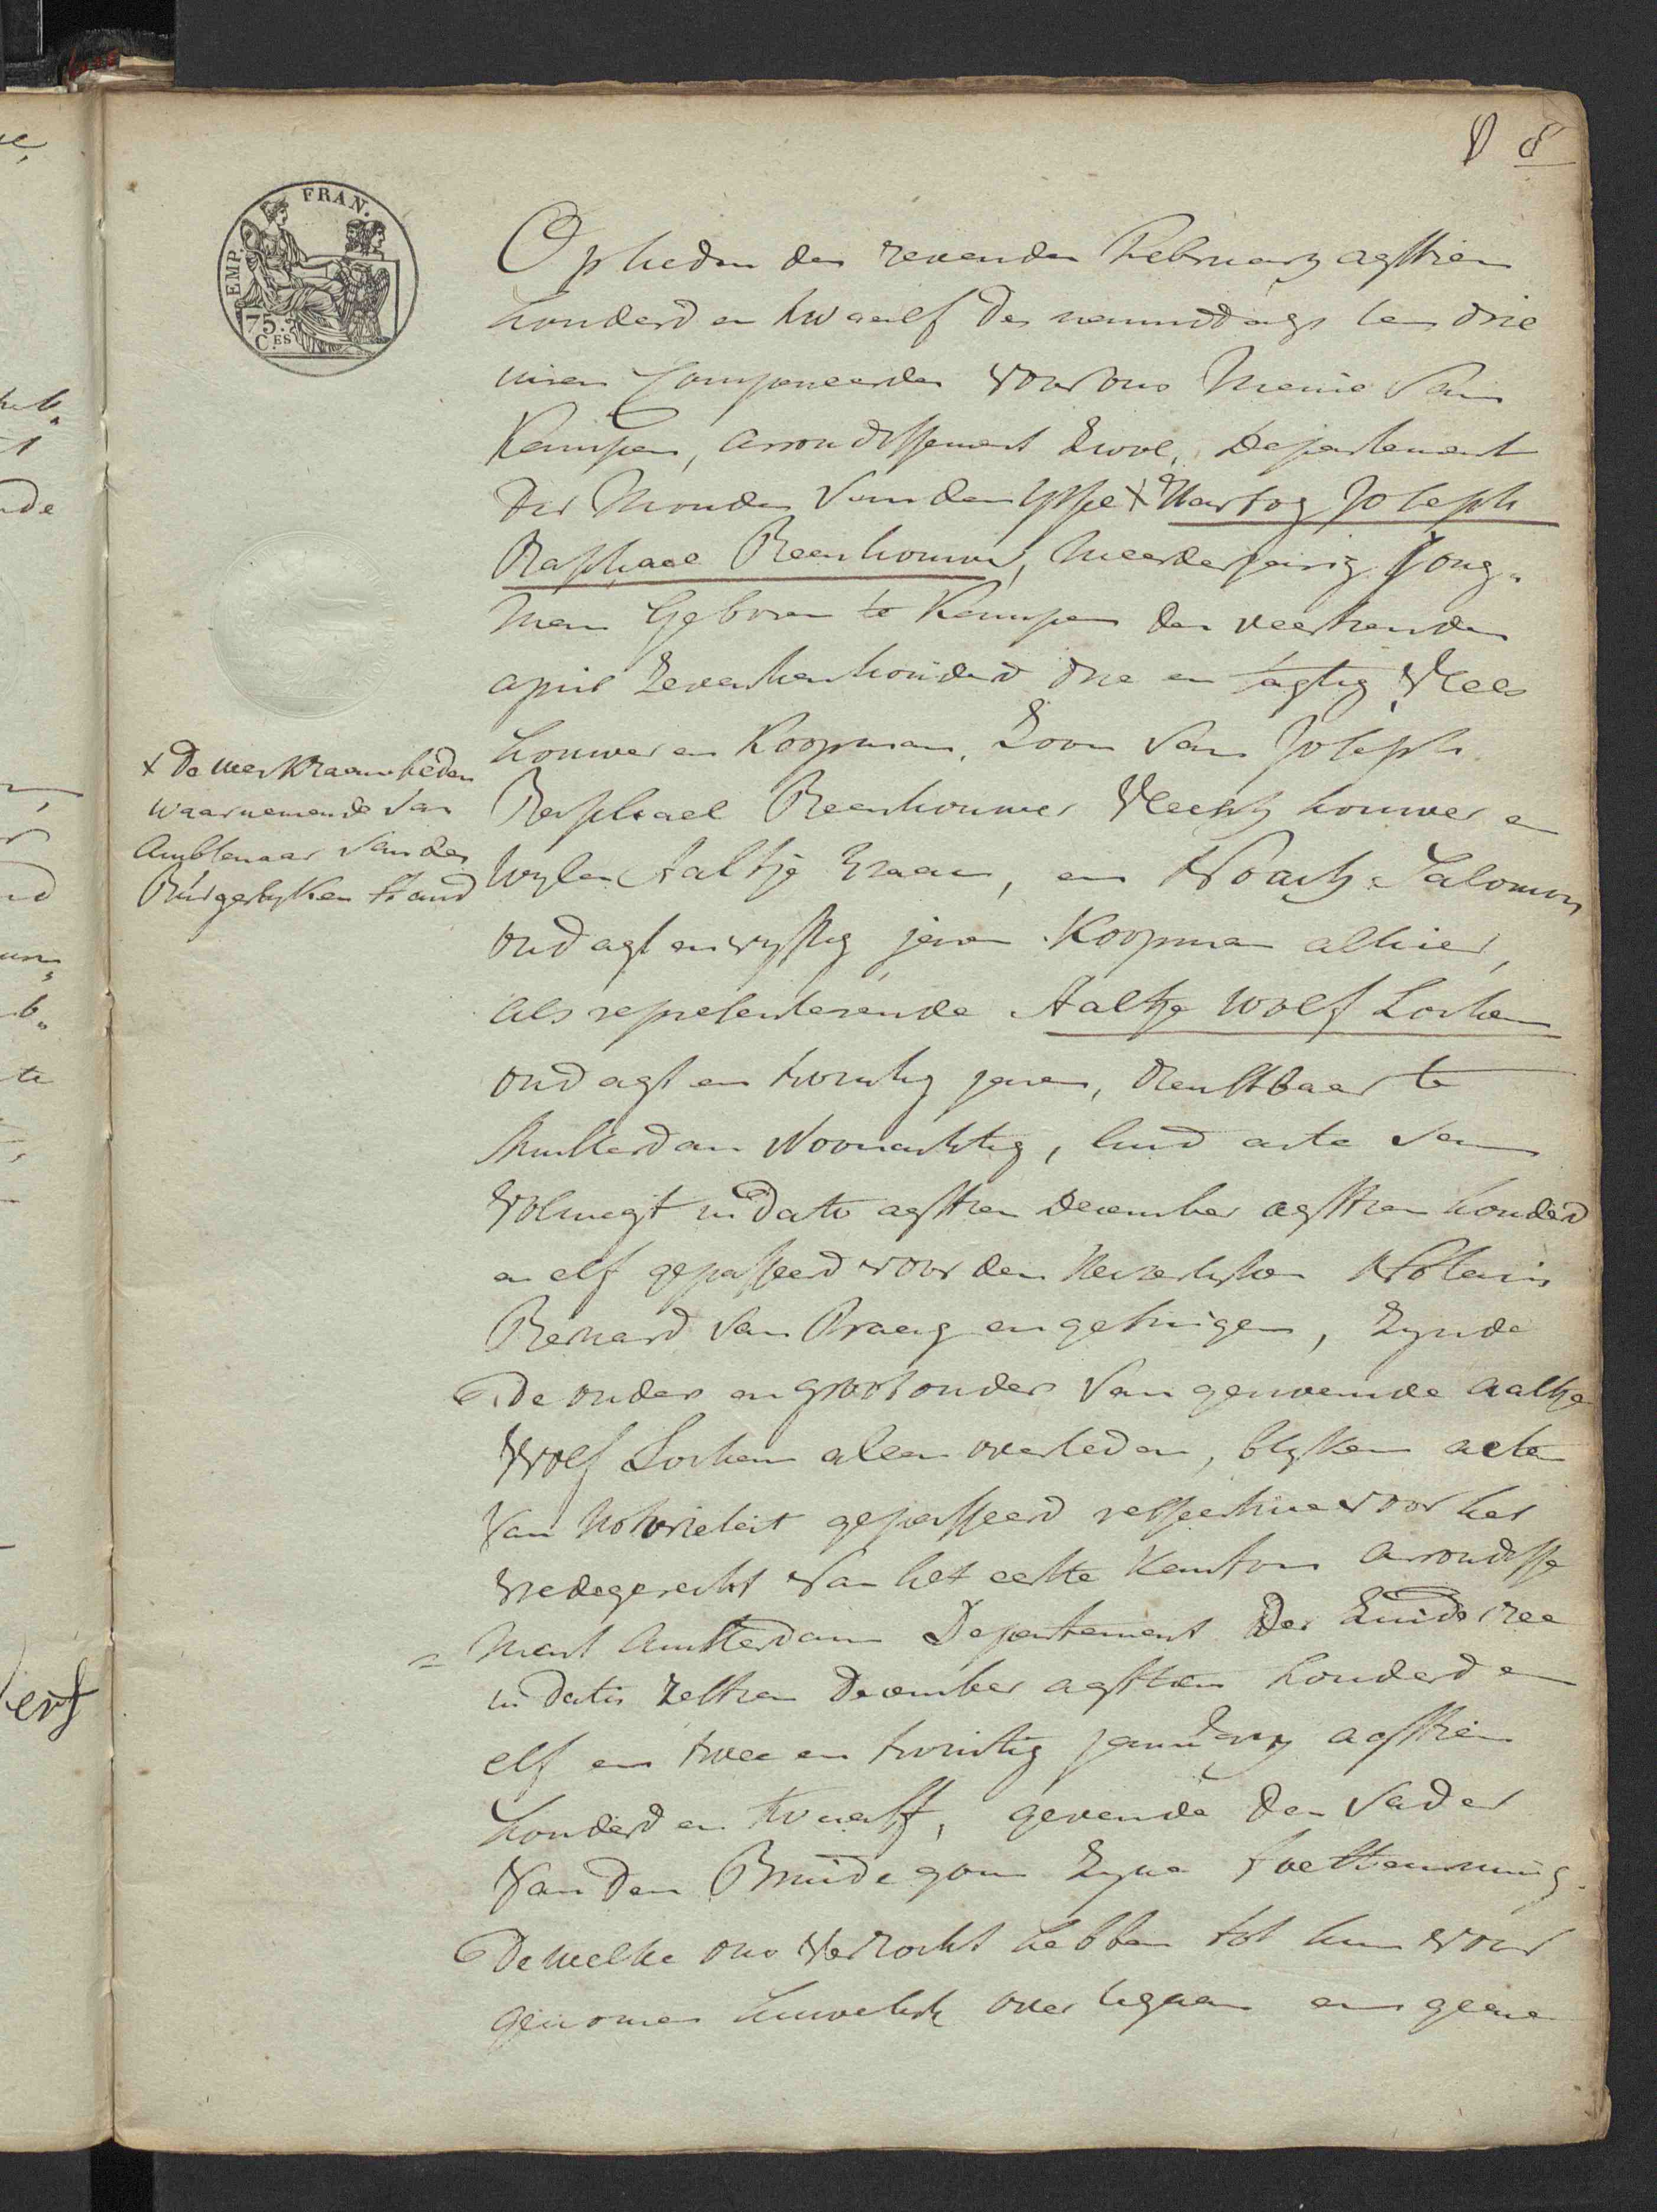 8
EMP. FRAN.
75.
C.ES
Op heden den zevenden February agttien
honderd en twaalf des namiddags ten drie
uuren Compareerden voor ons Maire van
Kampen, arrondissement Zwol, Departement
der Monden van den Yssel x Hartog Joseph
Raphael Beenhouwer, meerderjarig Jong„
man Geboren te Kampen den veertienden
april Zeventienhonderd drie en tagtig Vlees
houwer en Koopman, Zoon van Joseph
Raphael Beenhouwer Vleesch houwer en
wylen Aaltje Izaac, en Noach Salomon
oud agt en vyftig jaren Koopman alhier,
als representerende Aaltje Wolf Lochem
oud agt en twintig jaren, dienstbaar te
Amsterdam Woonachtig, luid acte van
Volmagt in dato agttien December agttien honderd
en elf gepasseerd voor den Keizerlyken Notaris
Bernard van Praag en getuigen, Zynde
de ouders en grootouders van genoemde Aaltje
Wolf Lochem allen overleden, blyken acte
van Notorieteit gepasseerd respective voor het
vredegerecht van het eerste Kanton arrondisse
ment Amsterdam Departement der Zuiderzee
in datis Zestien December agttien honderd en
elf en twee en twintig january agttien
honderd en twaalf, gevende den Vader
van den Bruidegom Zyne toestemming.
Dewelke ons Verzocht hebben tot hun voor
genomen huwelyk overtegaan en geene
x De werkzaamheden
waarnemende van
Amblenaar van den
Burgerlyken stand